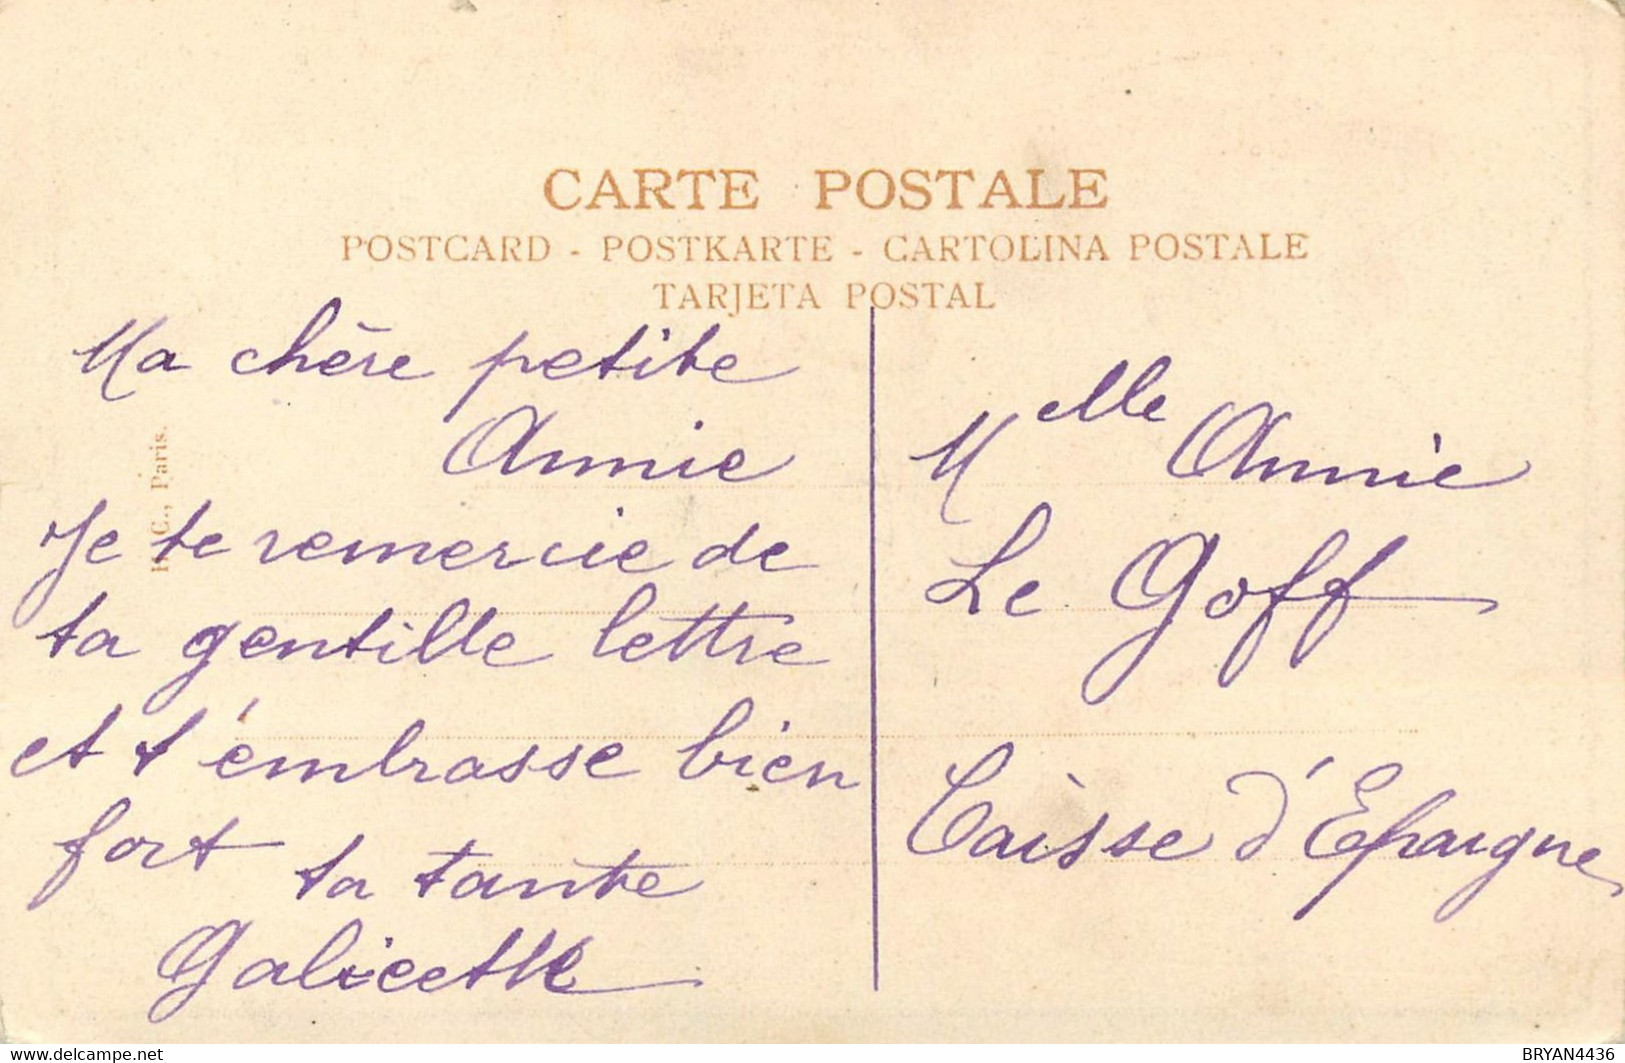 CARTE POSTALE
POSTCARD - POSTKARTE - CARTOLINA POSTALE
TARJETA POSTAL
Ma chère petite
Annie
Je te remercie de
ta gentille lettre
et t'embrasse bien
fort ta tante
Galicette
Melle Annie
Le Goff
Caisse d'Epargne
C., Paris.
delcampe.net
BRYAN4436